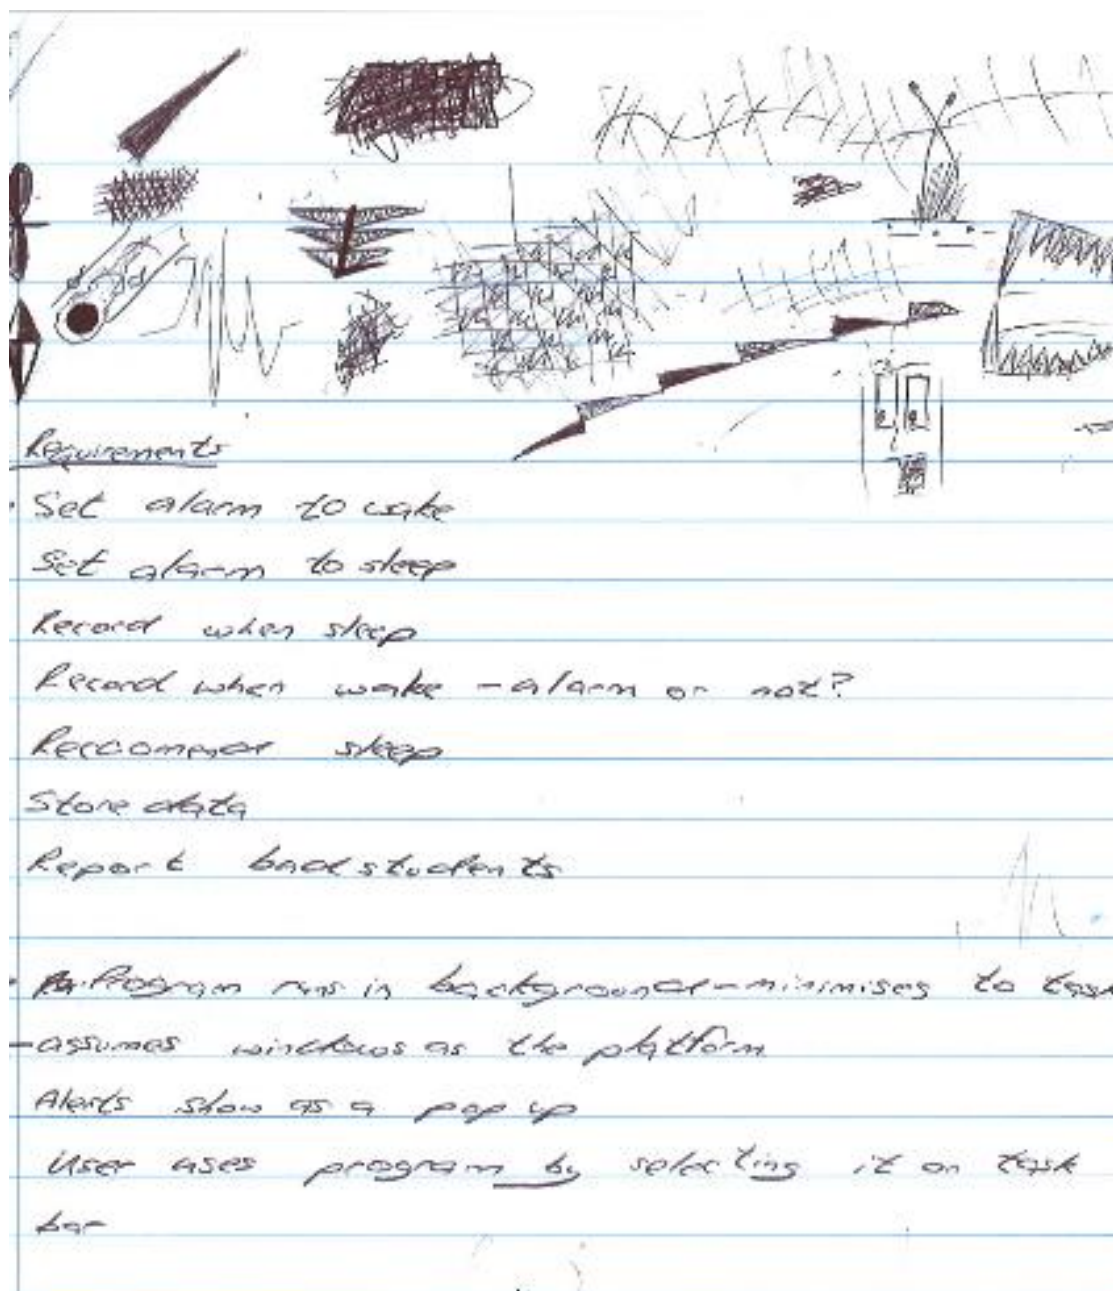 Requirements
Set alarm to wake
Set alarm to sleep
Record when sleep
Record when wake - alarm or not?
Reccomend sleep
Store data
Report bad students
Program runs in background - minimises to task
- assumes windows as the platform
Alerts show as a pop up
User uses program by selecting it on task
bar